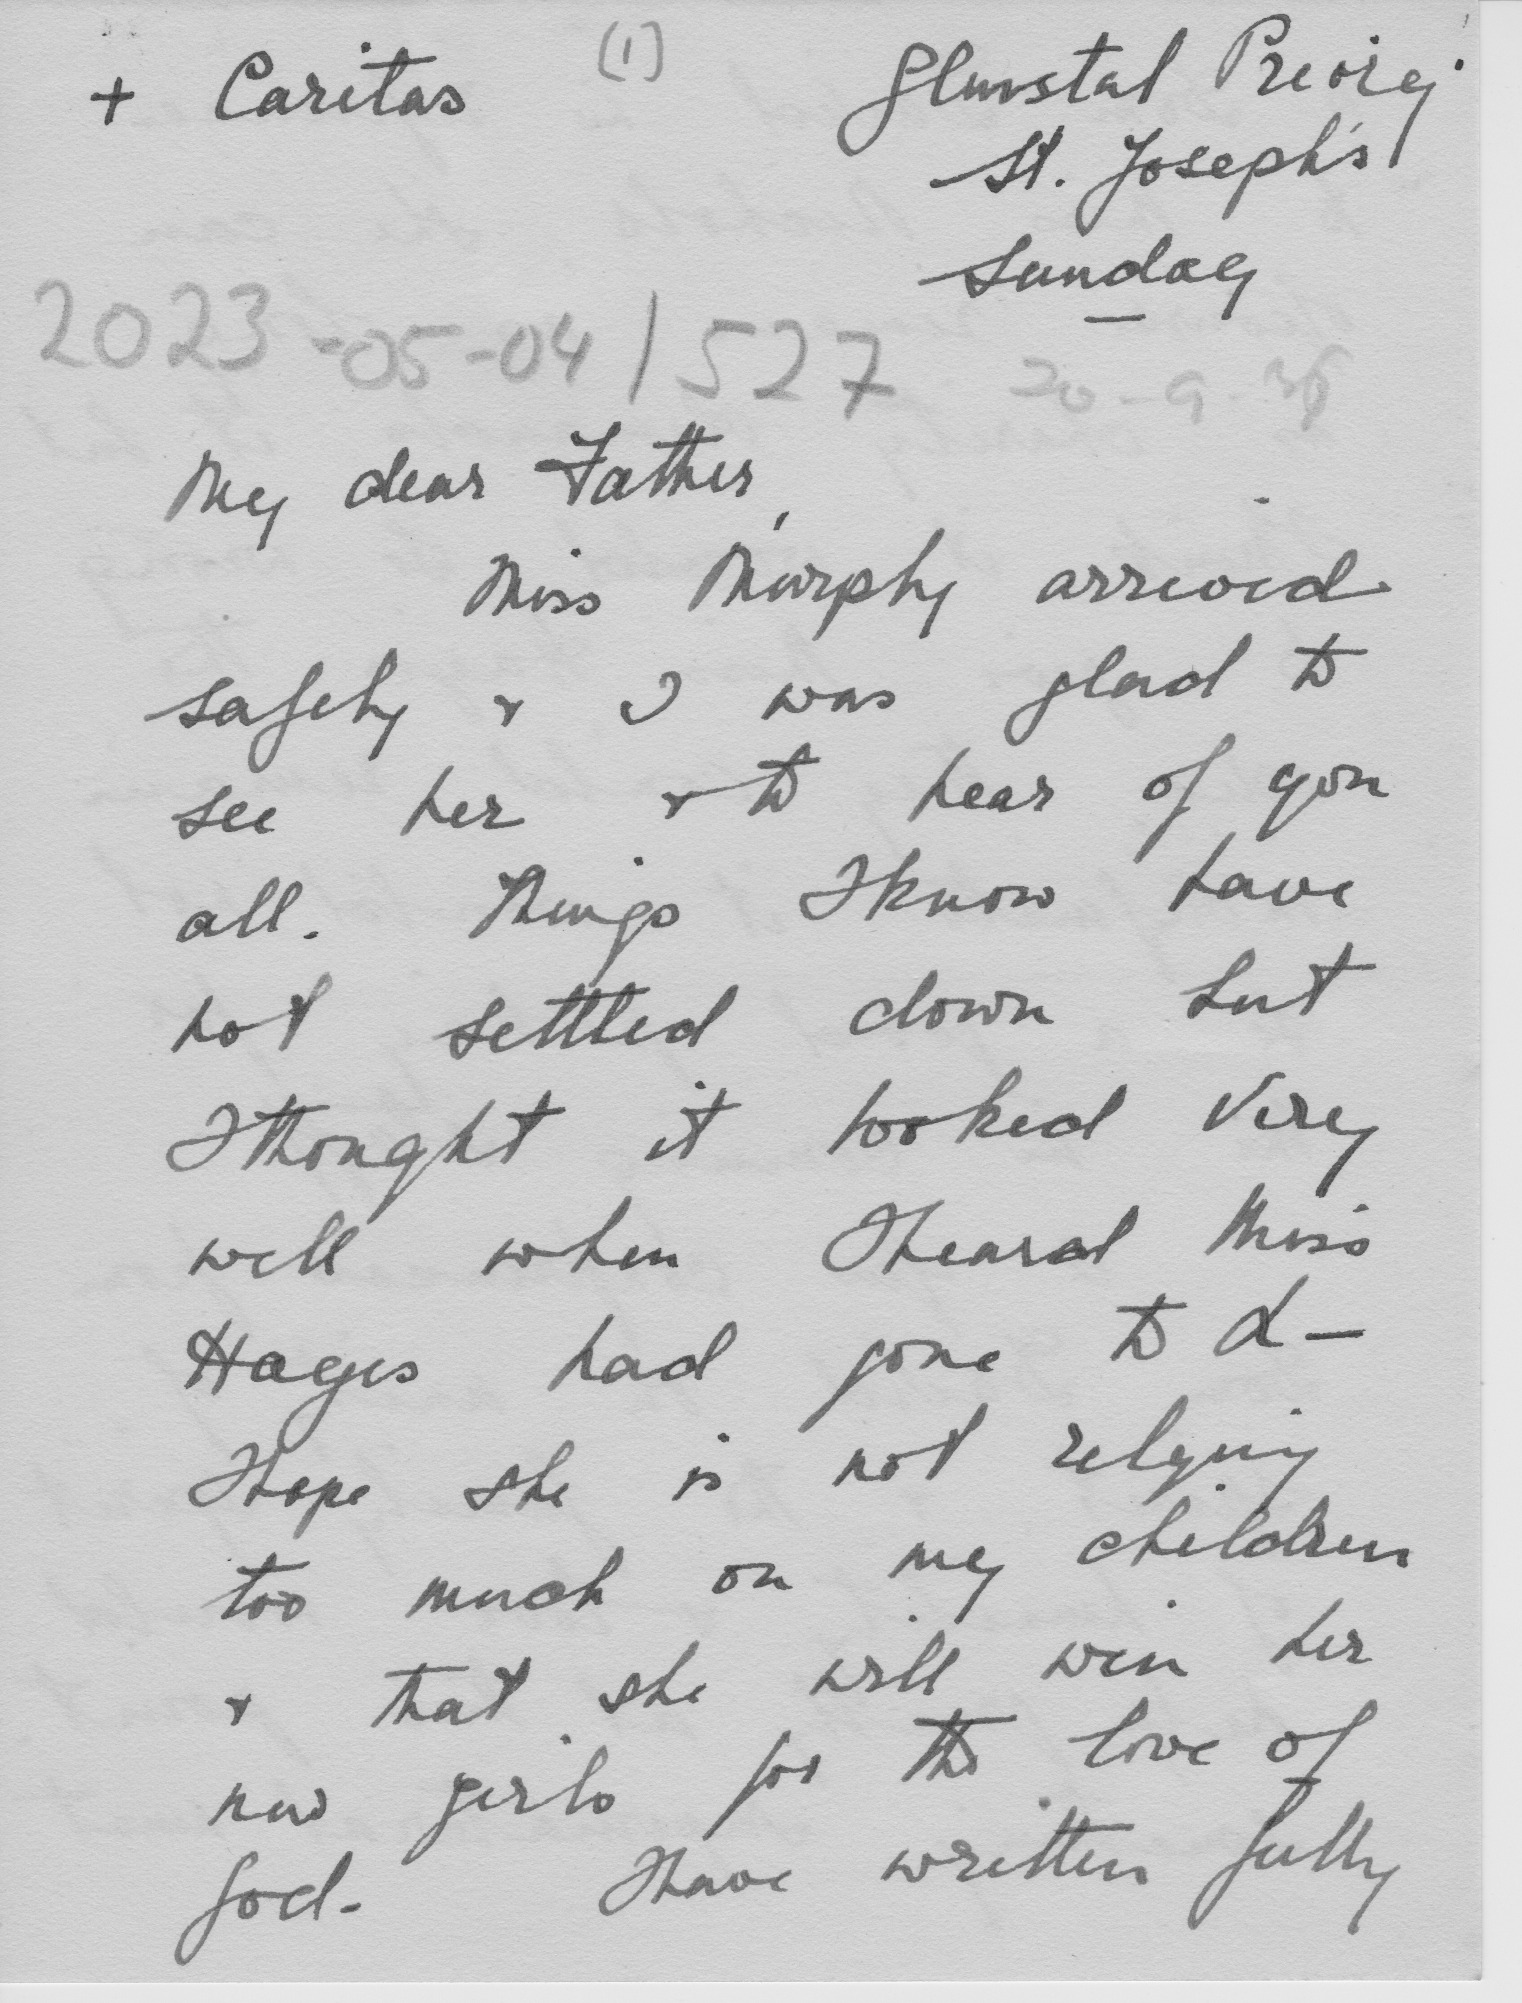 (1)
+ Caritas
Glenstal Priory
St. Joseph's
Sunday
2023-05-04/527
20-9-36
My dear Father,
Miss Murphy arrived
safely & I was glad to
see her & to hear of you
all. Things I know have
not settled down but
I thought it looked very
well when I heard Miss
Hayes had gone to d-
I hope she is not relying
too much on my children
& that she will win her
new girls for the love of
God. I have written fully